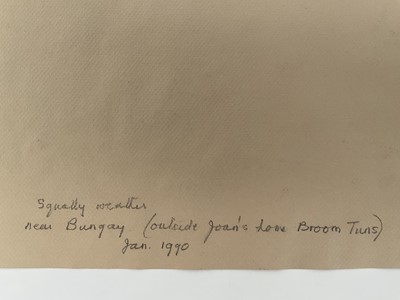 Squally weather
near Bungay (outside Joan's home Broom Tuns)
Jan. 1990